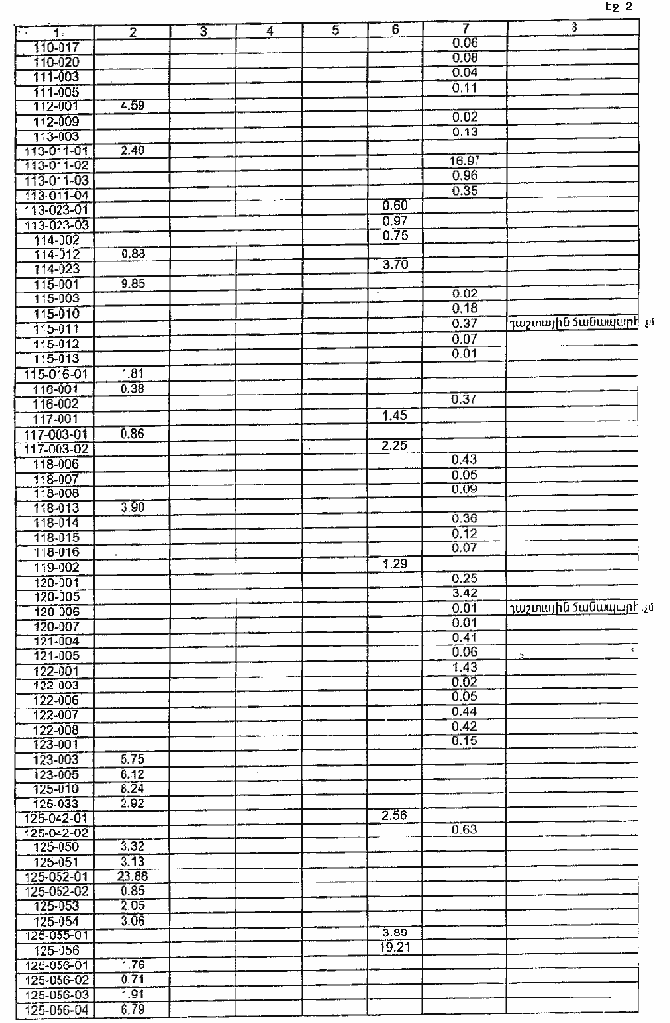 Էջ 2
1 2 3 4 5 6 7 8
110-017 0.06
110-020 0.08
111-003 0.04
111-005 0.11
112-001 4.59
112-009 0.02
113-003 0.13
113-011-01 2.40
113-011-02 16.97
113-011-03 0.96
113-011-04 0.35
113-023-01 0.60
113-023-03 0.97
114-002 0.75
114-012 0.88
114-023 3.70
115-001 9.85
115-003 0.02
115-010 0.18
115-011 0.37 դաշտային ճանապարհ
115-012 0.07
115-013 0.01
115-016-01 1.81
116-001 0.38
116-002 0.37
117-001 1.45
117-003-01 0.86
117-003-02 2.25
118-006 0.43
118-007 0.05
118-008 0.09
118-013 3.90
118-014 0.36
118-015 0.12
118-016 0.07
119-002 1.29
120-001 0.25
120-005 3.42
120-006 0.01 դաշտային ճանապարհ
120-007 0.01
121-004 0.41
121-005 0.06
122-001 1.43
122-003 0.02
122-006 0.05
122-007 0.44
122-008 0.42
123-001 0.15
123-003 5.75
123-005 6.12
125-010 8.24
125-033 2.92
125-042-01 2.56
125-042-02 0.63
125-050 3.32
125-051 3.13
125-052-01 23.88
125-052-02 0.85
125-053 2.05
125-054 3.06
125-055-01 3.89
125-056 19.21
125-056-01 1.76
125-056-02 0.71
125-056-03 1.91
125-056-04 6.79